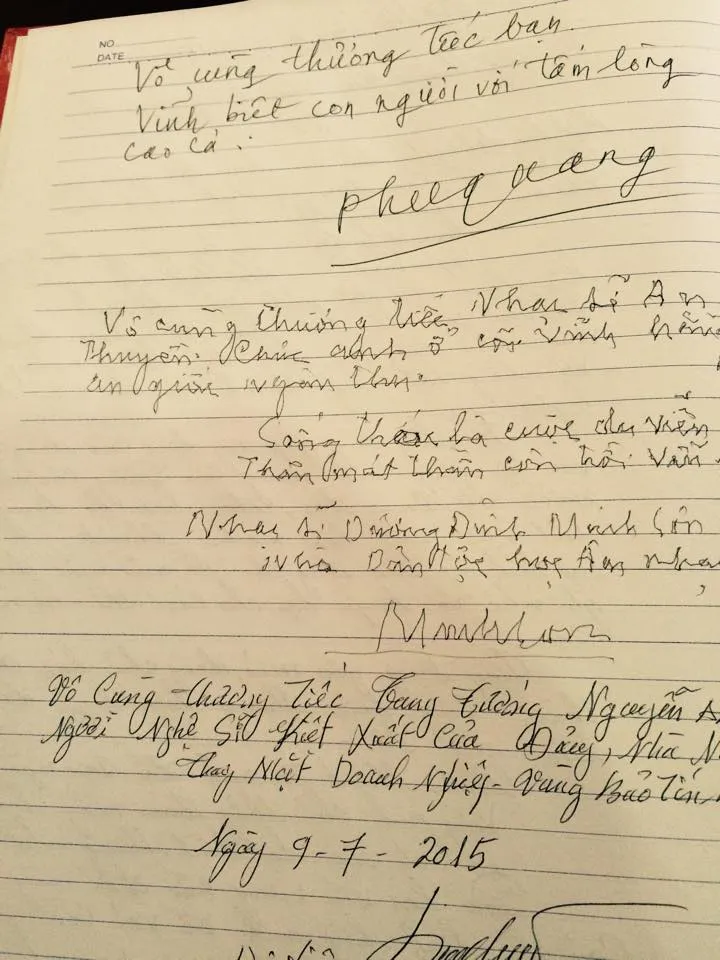 NO.
DATE
Vô cùng thương tiếc bạn.
Vĩnh biệt con người với tấm lòng
cao cả.
phuquang
Vô cùng thương tiếc Nhạc sĩ An
Thuyên. Chúc anh ở cõi vĩnh hằng
an giấc ngàn thu.
Sống thác là cuộc du viễn
Thân mát thần còn hồi vẫn
Nhạc sĩ Dương Đình Minh Sơn
Nhà Dân tộc học Âm nhạ
Minhson
Vô Cùng thương Tiếc Trung Tướng Nguyễn A
Người Nghệ Sĩ Kiệt Xuất Của Đảng, Nhà N
Thay Mặt Doanh Nghiệp - Vàng Bảo Tín
Ngày 9-7-2015